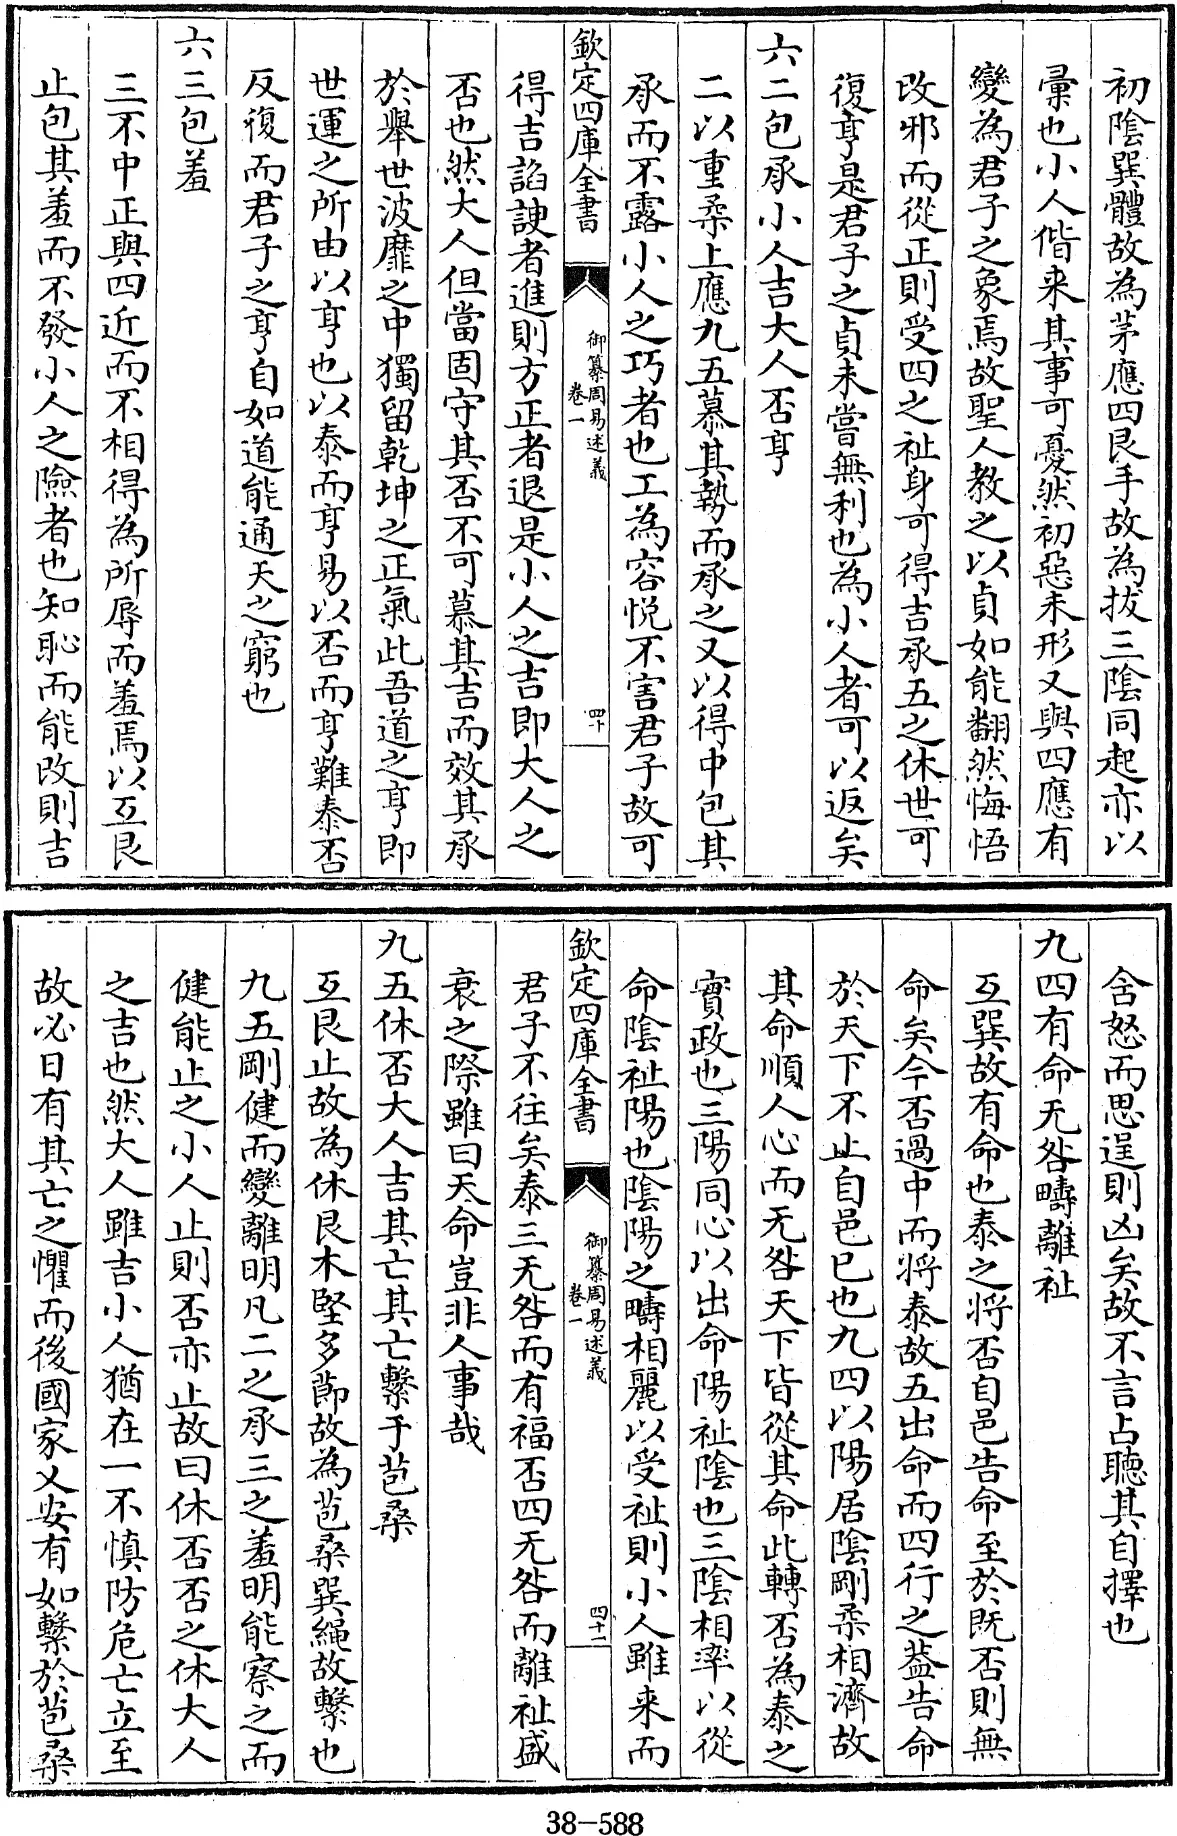 初陰巽體故為茅應四艮手故為拔三陰同起亦以
彚也小人偕来其事可憂然初惡未形又與四應有
變為君子之象焉故聖人教之以貞如能翻然悔悟
改邪而從正則受四之祉身可得吉承五之休世可
復亨是君子之貞未嘗無利也為小人者可以返矣
六二包承小人吉大人否亨
二以重柔上應九五慕其勢而承之又以得中包其
承而不露小人之巧者也工為容悦不害君子故可
欽定四庫全書
御纂周易述義
卷一
四十
得吉諂諛者進則方正者退是小人之吉即大人之
否也然大人但當固守其否不可慕其吉而效其承
於舉世波靡之中獨留乾坤之正氣此吾道之亨即
世運之所由以亨也以泰而亨易以否而亨難泰否
反復而君子之亨自如道能通天之窮也
六三包羞
三不中正與四近而不相得為所辱而羞焉以互艮
止包其羞而不發小人之險者也知恥而能改則吉
含怒而思逞則凶矣故不言占聽其自擇也
九四有命无咎疇離祉
互巽故有命也泰之将否自邑告命至於既否則無
命矣今否過中而将泰故五出命而四行之葢告命
於天下不止自邑已也九四以陽居陰剛柔相濟故
其命順人心而无咎天下皆從其命此轉否為泰之
實政也三陽同心以出命陽祉陰也三陰相率以從
命陰祉陽也陰陽之疇相麗以受祉則小人雖来而
欽定四庫全書
御纂周易述義
卷一
四十一
君子不往矣泰三无咎而有福否四无咎而離祉盛
衰之際雖曰天命豈非人事哉
九五休否大人吉其亡其亡繫于苞桑
互艮止故為休艮木堅多節故為苞桑巽繩故繫也
九五剛健而變離明凡二之承三之羞明能察之而
健能止之小人止則否亦止故曰休否否之休大人
之吉也然大人雖吉小人猶在一不慎防危亡立至
故必日有其亡之懼而後國家乂安有如繫於苞桑
38-588